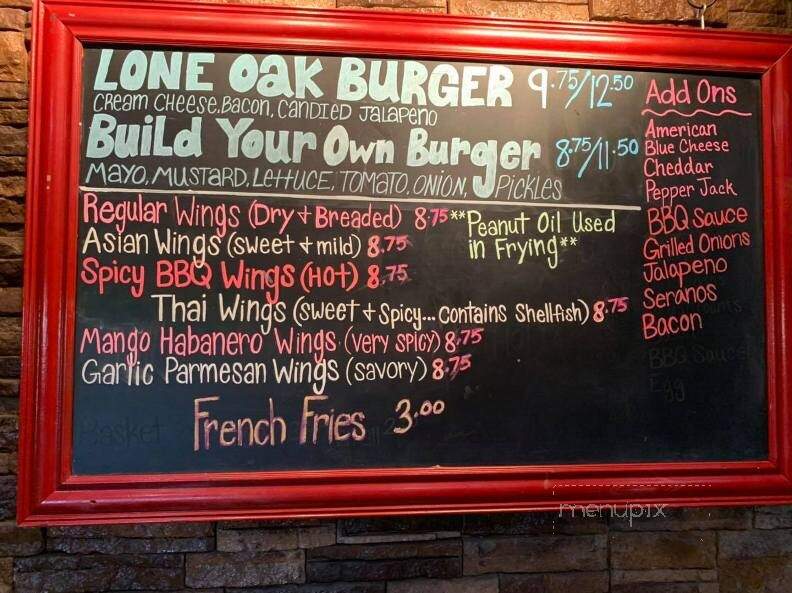 LONE OAK BURGER 9.75/12.50
CREAM CHEESE, BACON, CANDIED JALAPENO
Build Your Own Burger 8.75/11.50
MAYO, MUSTARD, LETTUCE, TOMATO, ONION, PICKLES
Regular Wings (Dry + Breaded) 8.75
**Peanut Oil Used
in Frying**
Asian Wings (sweet + mild) 8.75
Spicy BBQ Wings (HOT) 8.75
Thai Wings (sweet + Spicy... contains Shellfish) 8.75
Mango Habanero Wings (very spicy) 8.75
Garlic Parmesan Wings (savory) 8.75
French Fries 3.00
Basket
Add Ons
American
Blue Cheese
Cheddar
Pepper Jack
BBQ Sauce
Grilled Onions
Jalapeno
Seranos
Bacon
BBQ Sauce
Egg
menupix